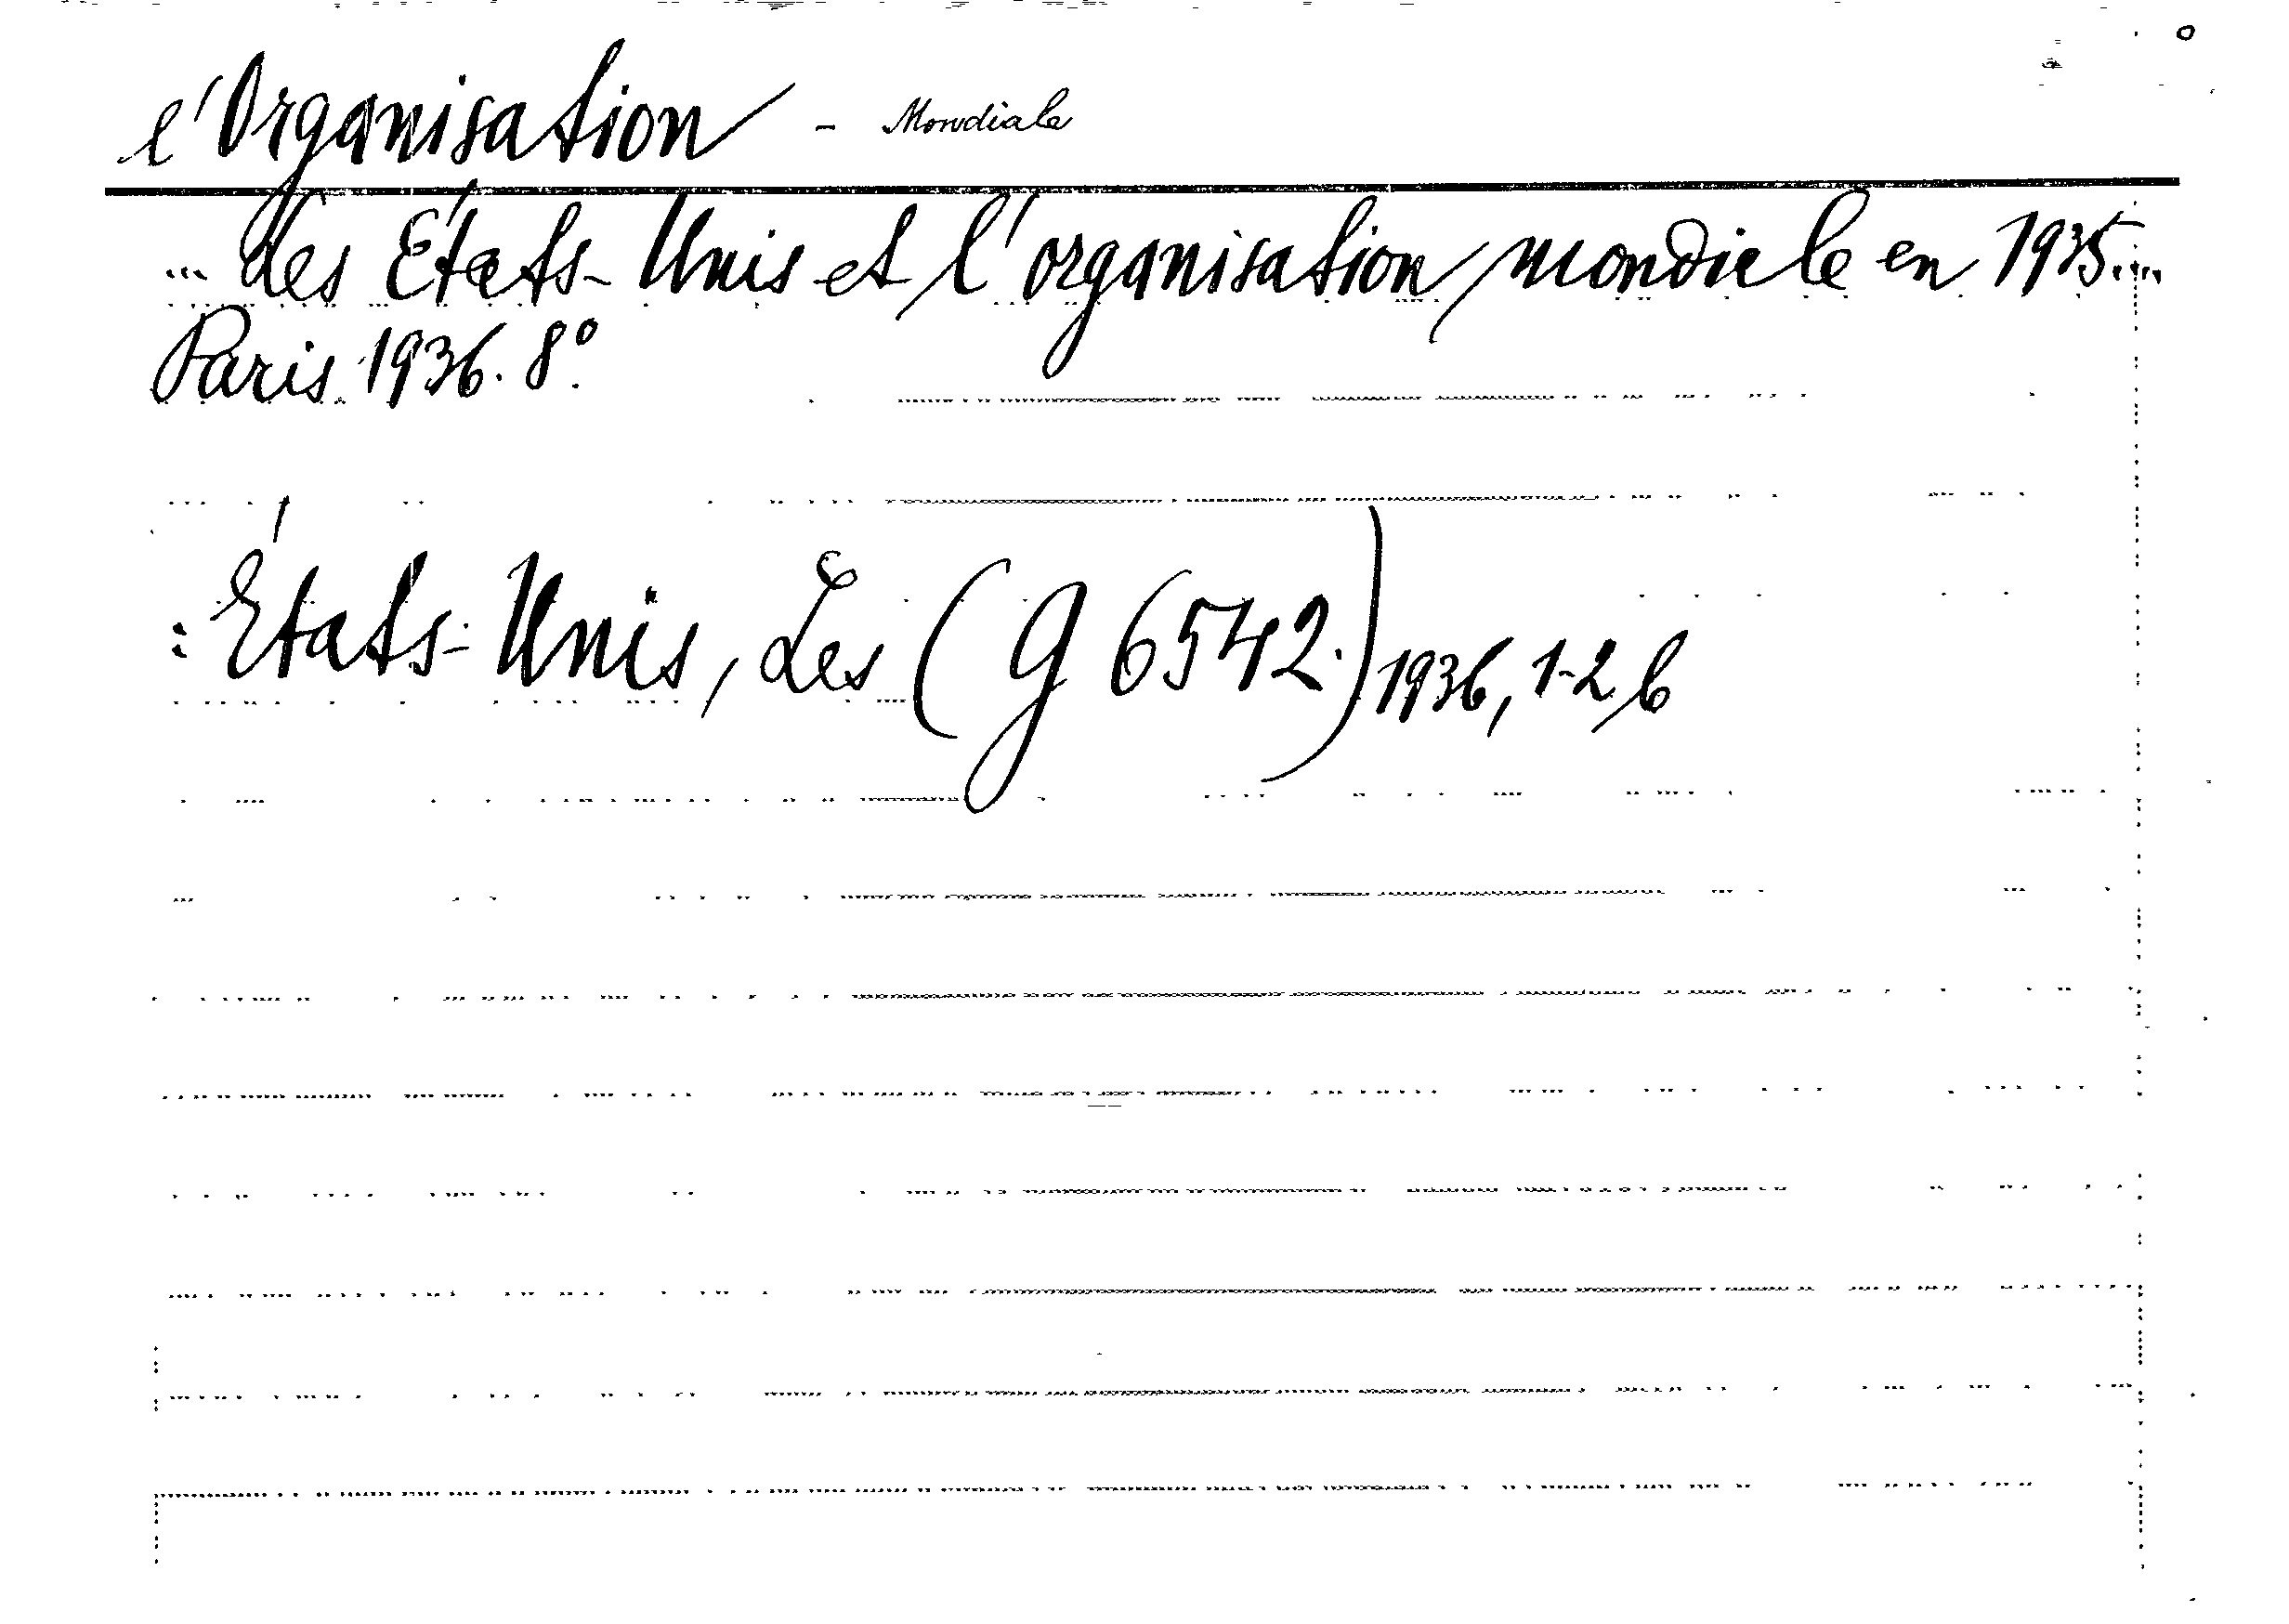 l'Organisation - Mondiale
... Les États-Unis et l'organisation mondiale en 1935....
Paris 1936. 8°.
: États-Unis, Les (G 6542.) 1936, 1-2, b